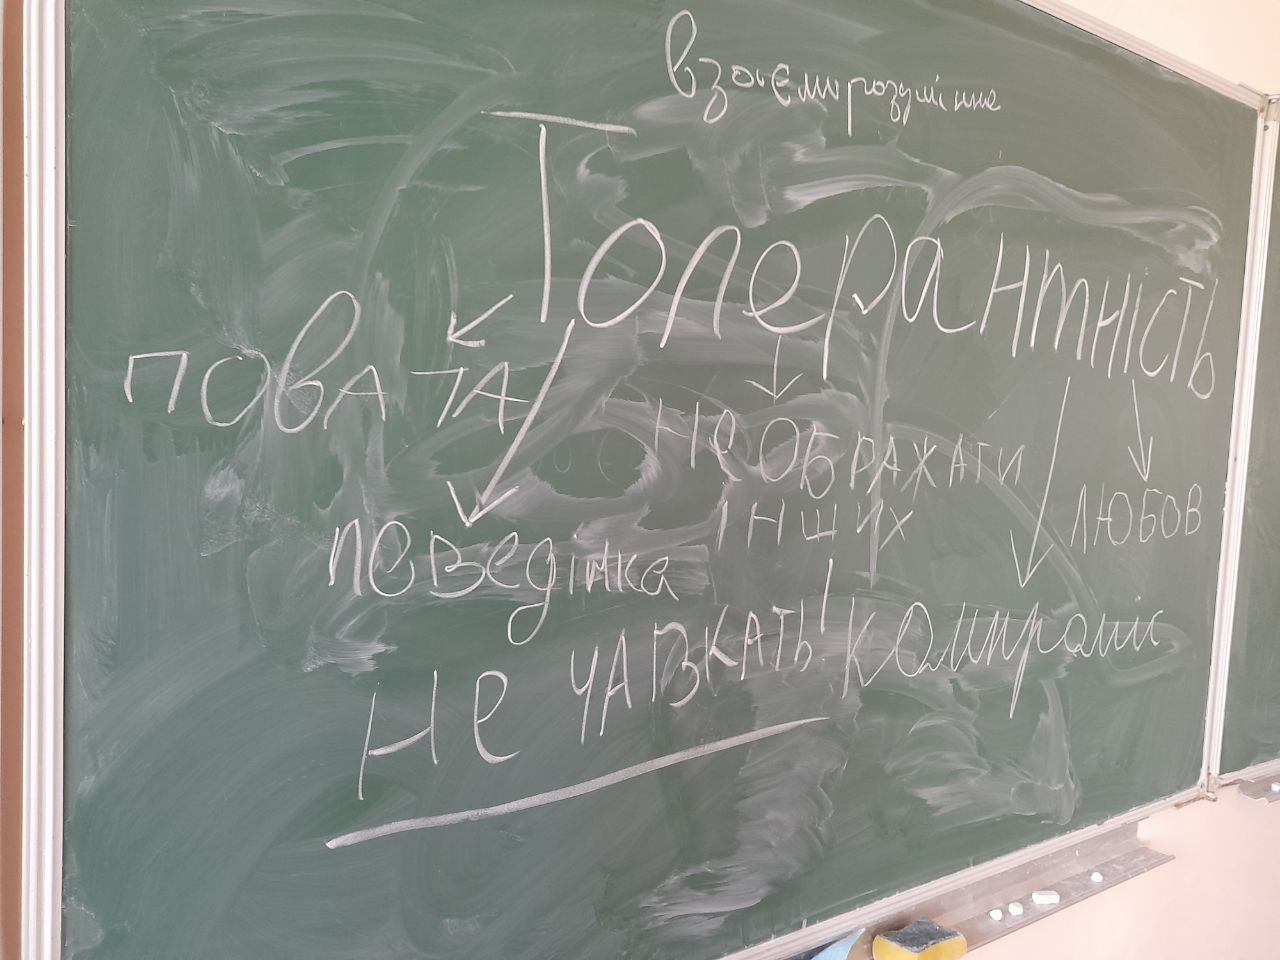 взаєморозуміння
Толерантність
повага
не ображати
інших
любов
поведінка
компроміс
не чавкать!